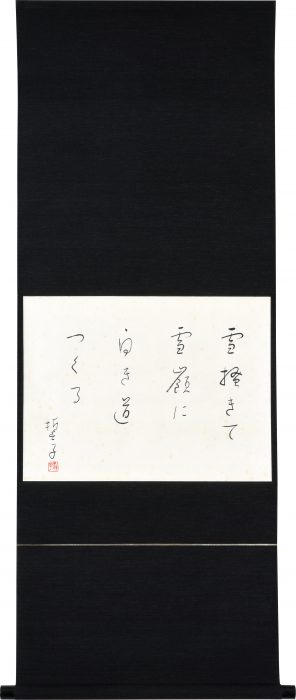 雪掻きて
雪嶺に
白き道
つくる
誓子